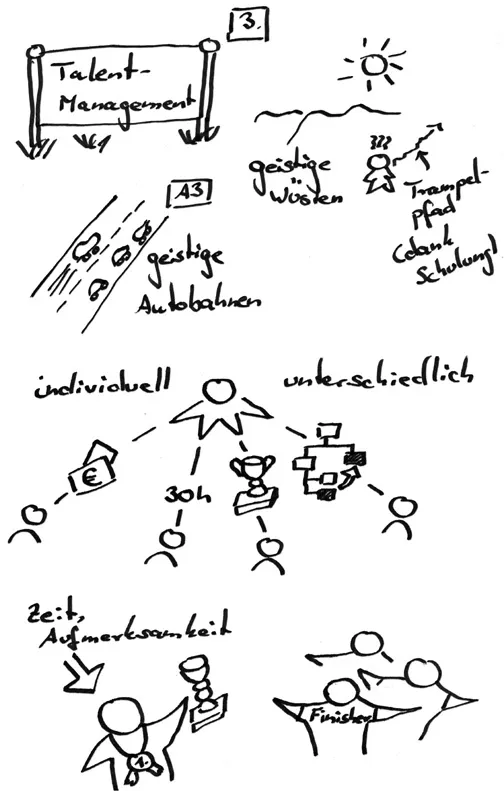 3.
Talent-
Management
geistige
Wüsten
Trampel-
pfad
(dank
Schulung)
A3
geistige
Autobahnen
individuell
unterschiedlich
€
30h
Zeit,
Aufmerksamkeit
1.
Finisher